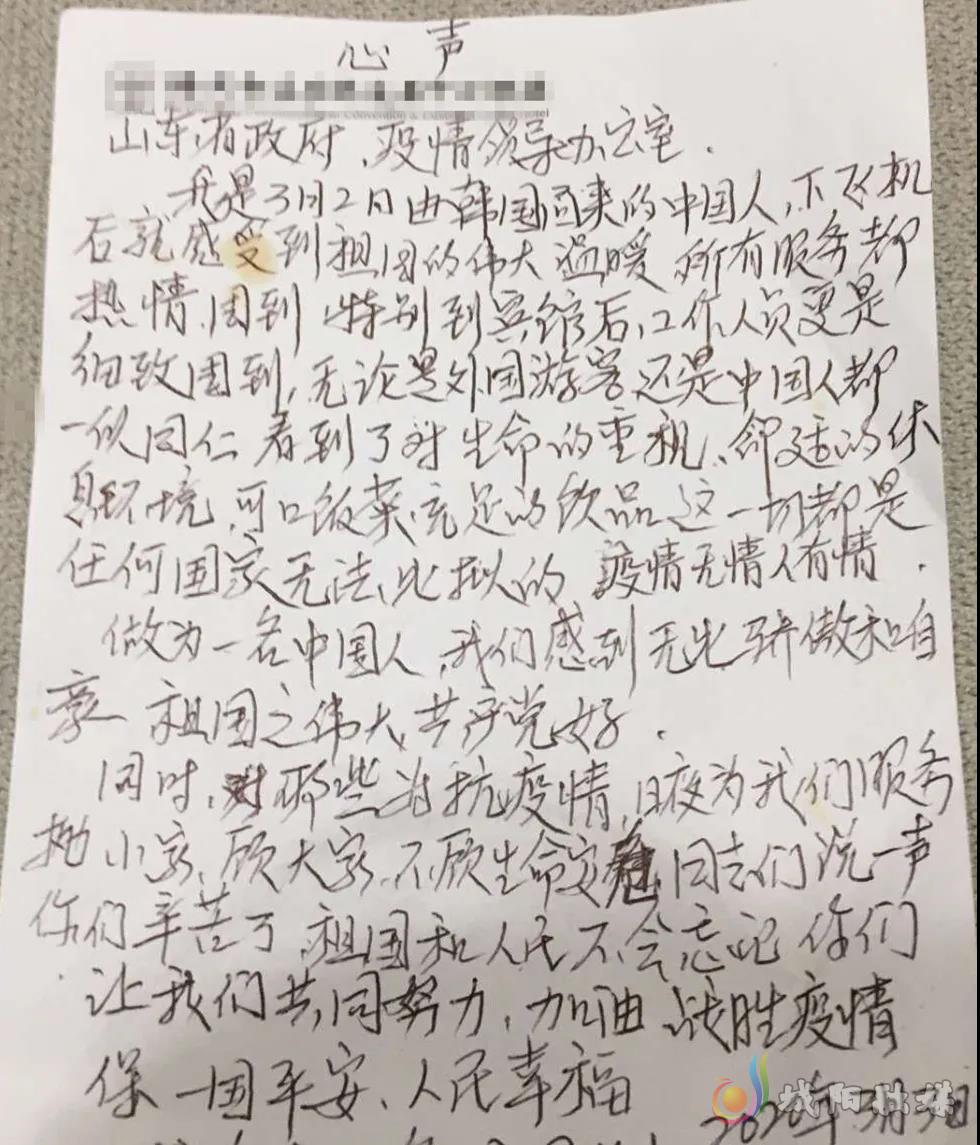 心声
Convention & Exhibition Hotel
山东省政府、疫情领导办公室.
我是3月2日由韩国回来的中国人,下飞机
后就感受到祖国的伟大温暖 所有服务都
热情、周到 特别到宾馆后,工作人员更是
细致周到,无论是外国游客还是中国人都
一似同仁 看到了对生命的重视、舒适的休
息环境,可口饭菜,充足的饮品 这一切都是
任何国家无法比拟的 疫情无情人有情.
做为一名中国人,我们感到无比骄傲和自
豪 祖国之伟大,共产党好.
同时,对那些为抗疫情,日夜为我们服务
抛小家,顾大家,不顾生命安危 同志们说一声
你们辛苦了,祖国和人民不会忘记你们
让我们共同努力,加油 战胜疫情
保一国平安、人民幸福
2020年3月3日
城阳壮媒